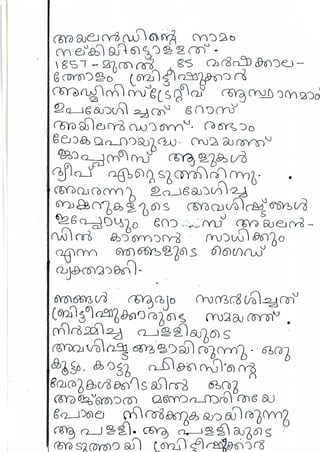 അയലൻഡിന്റെ നാമം
നല്കിയിട്ടൊള്ളത്.
1857-മുതൽ 85 വർഷക്കാല-
ത്തോളം ബ്രിട്ടീഷുക്കാർ
അഡ്മിനിസ്ട്രേറ്റീവ് ആസ്ഥാനമാം
ഉപയോഗിച്ചത് റോസ്
അയിലൻഡാണ്. രണ്ടാം
ലോകമഹായുദ്ധ സമയത്ത്
ജാപ്പനീസ് ആളുകൾ
ദ്വീപ് ഏറ്റെടുത്തിരിന്നു.
അവരന്നു ഉപയോഗിച്ച
ബങ്കറുകളുടെ അവശിഷ്ടങ്ങൾ
ഇപ്പോഴും റോസ് അയലൻ-
ഡിൽ കാണാൻ സാധിക്കും
എന്ന ഞങ്ങളുടെ ഗൈഡ്
വ്യക്തമാക്കി.
ഞങ്ങൾ ആദ്യം സന്ദർശിച്ചത്
ബ്രിട്ടീഷുക്കാരുടെ സമയത്ത്
നിർമ്മിച്ച പള്ളിയുടെ
അവശിഷ്ടങ്ങളായിരുന്നു. ഒരു
കൂട്ടം കാട്ടു ഫിക്കസിന്റെ
വേരുകൾക്കിടയിൽ ഒരു
അജ്ഞാത മണാഹരിതയേ
പോലെ നിൽക്കുകയായിരുന്നു
ആ പള്ളി. ആ പള്ളിയുടെ
അടുത്തായി ബ്രിട്ടീഷുക്കാർ